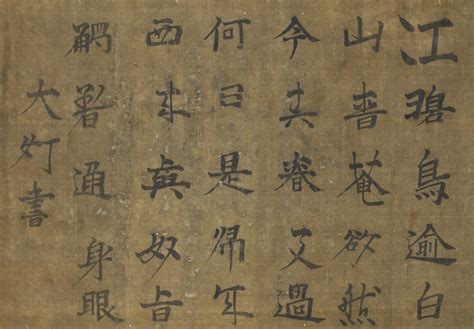 江碧鳥逾白
山青花欲然
今春看又過
何日是歸年
西来旨
觸著通身眼
大書